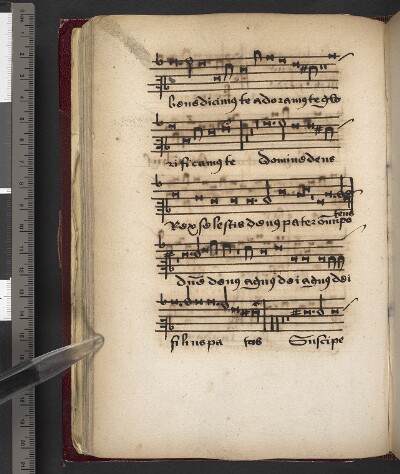 benedicimus te adoramus te glo
rificamus te domine deus
Rex selestis deus pater omnipo
tens
dne deus agnus dei agnus dei
filius pa tris Suscipe